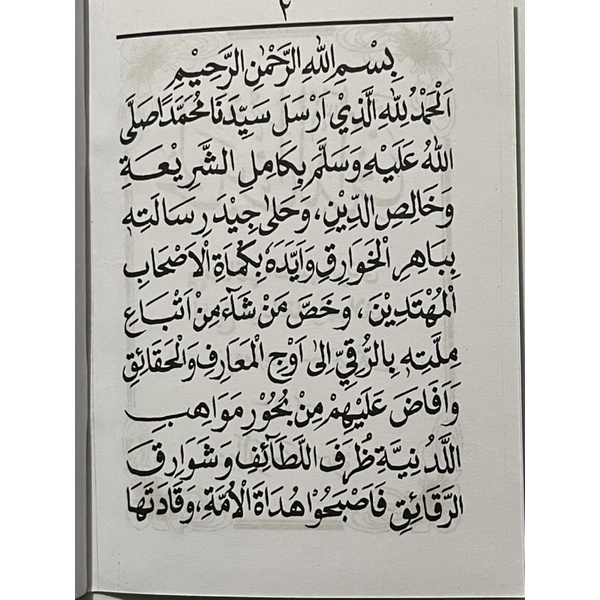 ٢
بِسْمِ اللهِ الرَّحْمٰنِ الرَّحِيْمِ
اَلْحَمْدُ لِلّٰهِ الَّذِيْ اَرْسَلَ سَيِّدَنَا مُحَمَّدًا صَلَّى
اللهُ عَلَيْهِ وَسَلَّمَ بِكَامِلِ الشَّرِيْعَةِ
وَخَالِصِ الدِّيْنِ، وَحَلَّى جِيْدَ رِسَالَتِهِ
بِبَاهِرِ الْخَوَارِقِ وَاَيَّدَهُ بِكُمَاةِ الْاَصْحَابِ
الْمُهْتَدِيْنَ، وَخَصَّ مَنْ شَآءَ مِنْ اَتْبَاعِ
مِلَّتِهِ بِالرُّقِيِّ اِلىٰ اَوْجِ الْمَعَارِفِ وَالْحَقَائِقِ
وَاَفَاضَ عَلَيْهِمْ مِنْ بُحُوْرِ مَوَاهِبِ
اللَّدُنِيَّةِ ظُرَفَ اللَّطَآئِفِ وَشَوَارِقَ
الرَّقَائِقِ فَاَصْبَحُوْا هُدَاةَ الْاُمَّةِ، وَقَادَتَهَا